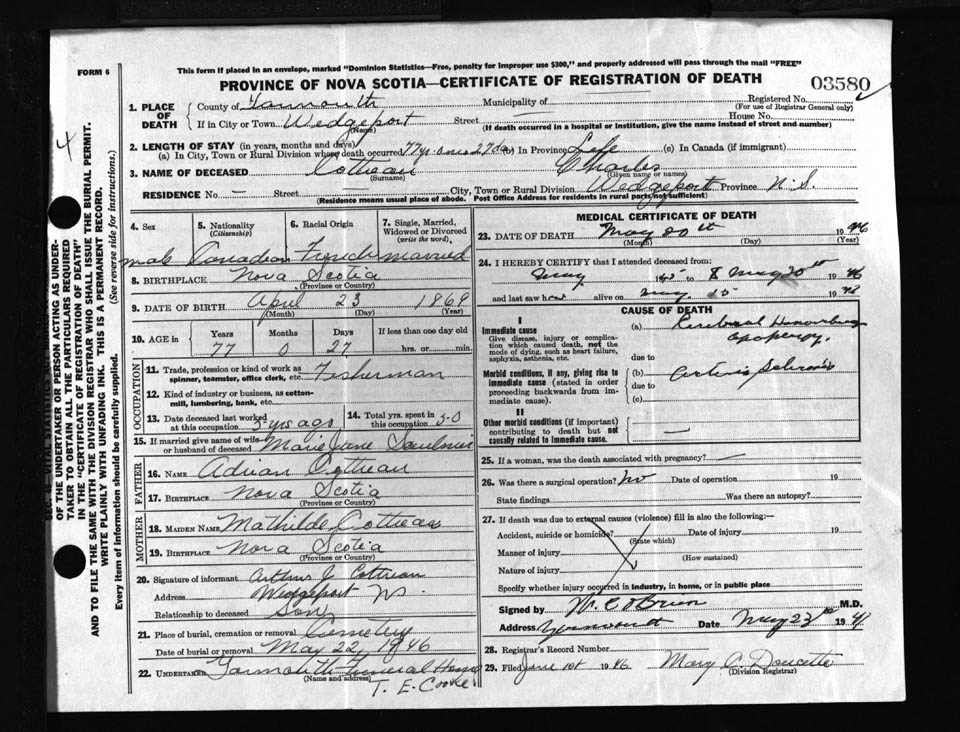 This form if placed in an envelope, marked "Dominion Statistics—Free, penalty for improper use $300," and properly addressed will pass through the mail "FREE"
FORM 6
PROVINCE OF NOVA SCOTIA—CERTIFICATE OF REGISTRATION OF DEATH
03580
4
AND TO FILE THE SAME WITH THE DIVISION REGISTRAR WHO SHALL ISSUE THE BURIAL PERMIT.
OF THE UNDERTAKER OR PERSON ACTING AS UNDER-
TAKER TO OBTAIN ALL THE PARTICULARS REQUIRED
IN THE "CERTIFICATE OF REGISTRATION OF DEATH"
WRITE PLAINLY WITH UNFADING INK. THIS IS A PERMANENT RECORD.
Every item of information should be carefully supplied. (See reverse side for instructions.)
1. PLACE OF DEATH County of Yarmouth Municipality of Registered No.
(For use of Registrar General only)
If in City or Town Wedgeport Street House No.
(Name) (If death occurred in a hospital or Institution, give the name instead of street and number)
2. LENGTH OF STAY (in years, months and days)
(a) In City, Town or Rural Division where death occurred 77 yrs 0 mos 27 da. (b) In Province Life (c) In Canada (if immigrant)
3. NAME OF DECEASED Cottreau Charles
(Surname) (Given name or names)
RESIDENCE No. — Street City, Town or Rural Division Wedgeport Province N.S.
(Residence means usual place of abode. Post Office Address for residents in rural parts not sufficient)
4. Sex 5. Nationality (Citizenship) 6. Racial Origin 7. Single, Married, Widowed or Divorced (write the word)
male Canadian French married
8. BIRTHPLACE Nova Scotia
(Province or Country)
9. DATE OF BIRTH April 23 1869
(Month) (Day) (Year)
10. AGE in Years Months Days If less than one day old
77 0 27 hrs. or min.
OCCUPATION
11. Trade, profession or kind of work as spinner, teamster, office clerk, etc. Fisherman
12. Kind of industry or business, as cotton-mill, lumbering, bank, etc.
13. Date deceased last worked at this occupation 3 yrs ago 14. Total yrs. spent in this occupation 50
15. If married give name of wife or husband of deceased Marie Jane
FATHER
16. NAME Adrian Cottreau
17. BIRTHPLACE Nova Scotia
(Province or Country)
MOTHER
18. MAIDEN NAME Mathilde Cottreau
19. BIRTHPLACE Nova Scotia
(Province or Country)
20. Signature of informant Arthur J Cottreau
Address Wedgeport NS.
Relationship to deceased Son
21. Place of burial, cremation or removal Cemetery
Date of burial or removal May 22, 1946
22. UNDERTAKER Yarmouth Funeral Home
(Name and address)
T. E. Cooke
MEDICAL CERTIFICATE OF DEATH
23. DATE OF DEATH May 20th 1946
(Month) (Day) (Year)
24. I HEREBY CERTIFY that I attended deceased from:
May 1945 to May 20th 1946
and last saw h alive on May 1946
CAUSE OF DEATH
I
Immediate cause
Give disease, injury or complication which caused death, not the mode of dying, such as heart failure, asphyxia, asthenia, etc.
(a) Cerebral
due to
Morbid conditions, if any, giving rise to immediate cause (stated in order proceeding backwards from immediate cause).
(b)
due to
(c)
II
Other morbid conditions (if important) contributing to death but not causally related to immediate cause. —
25. If a woman, was the death associated with pregnancy? —
26. Was there a surgical operation? No Date of operation 19
State findings Was there an autopsy?
27. If death was due to external causes (violence) fill in also the following:—
Accident, suicide or homicide? Date of injury 19
(State which)
Manner of injury
(How sustained)
Nature of injury
Specify whether injury occurred in industry, in home, or in public place
Signed by M.D.
Address Yarmouth Date May 23rd 19
28. Registrar's Record Number
29. Filed June 1st 1946 Mary A. Doucette
(Division Registrar)